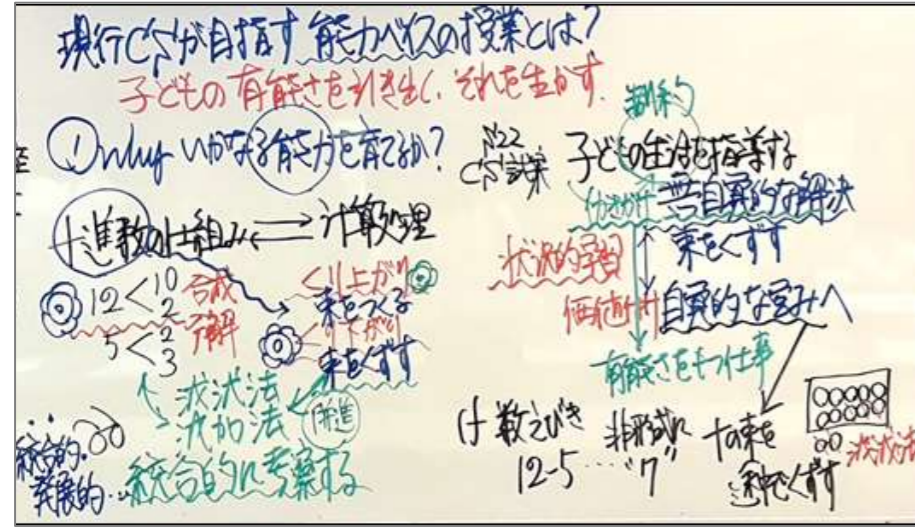 現行CSが目指す能力ベイスの授業とは?
子どもの有能さを引き出し、それを生かす.
① Only いかなる能力を育てるか?
十進数の仕組み ⇄ 計算処理
12<10 2 合成
5<2 3 分解
くり上がり
束をつくる
くり下がり
束をくずす
減減法
減加法
統合的
発展的
統合的に考察する
制約
S22
CS試案
子どもの生活を指導する
無自覚的な解決
束をくずす
状況的学習
価値付け 自覚的な営みへ
有能さをもつ仕事
数えひき
12-5…"7"
十の束を
くずす
減減法